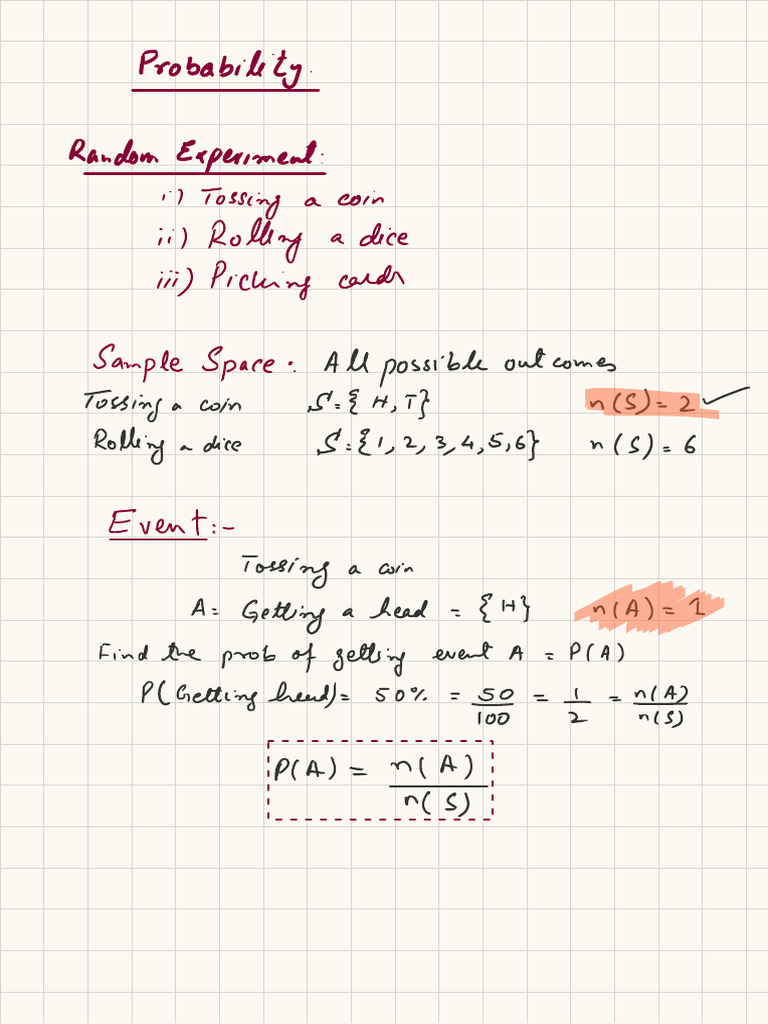 Probability.
Random Experiment:
i) Tossing a coin
ii) Rolling a dice
iii) Picking cards
Sample Space: All possible outcomes
Tossing a coin S={H,T} n(S)=2 ✓
Rolling a dice S={1,2,3,4,5,6} n(S)=6
Event:-
Tossing a coin
A= Getting a head = {H} n(A)=1
Find the prob of getting event A = P(A)
P(Getting head)= 50% = 50/100 = 1/2 = n(A)/n(S)
P(A) = n(A)/n(S)